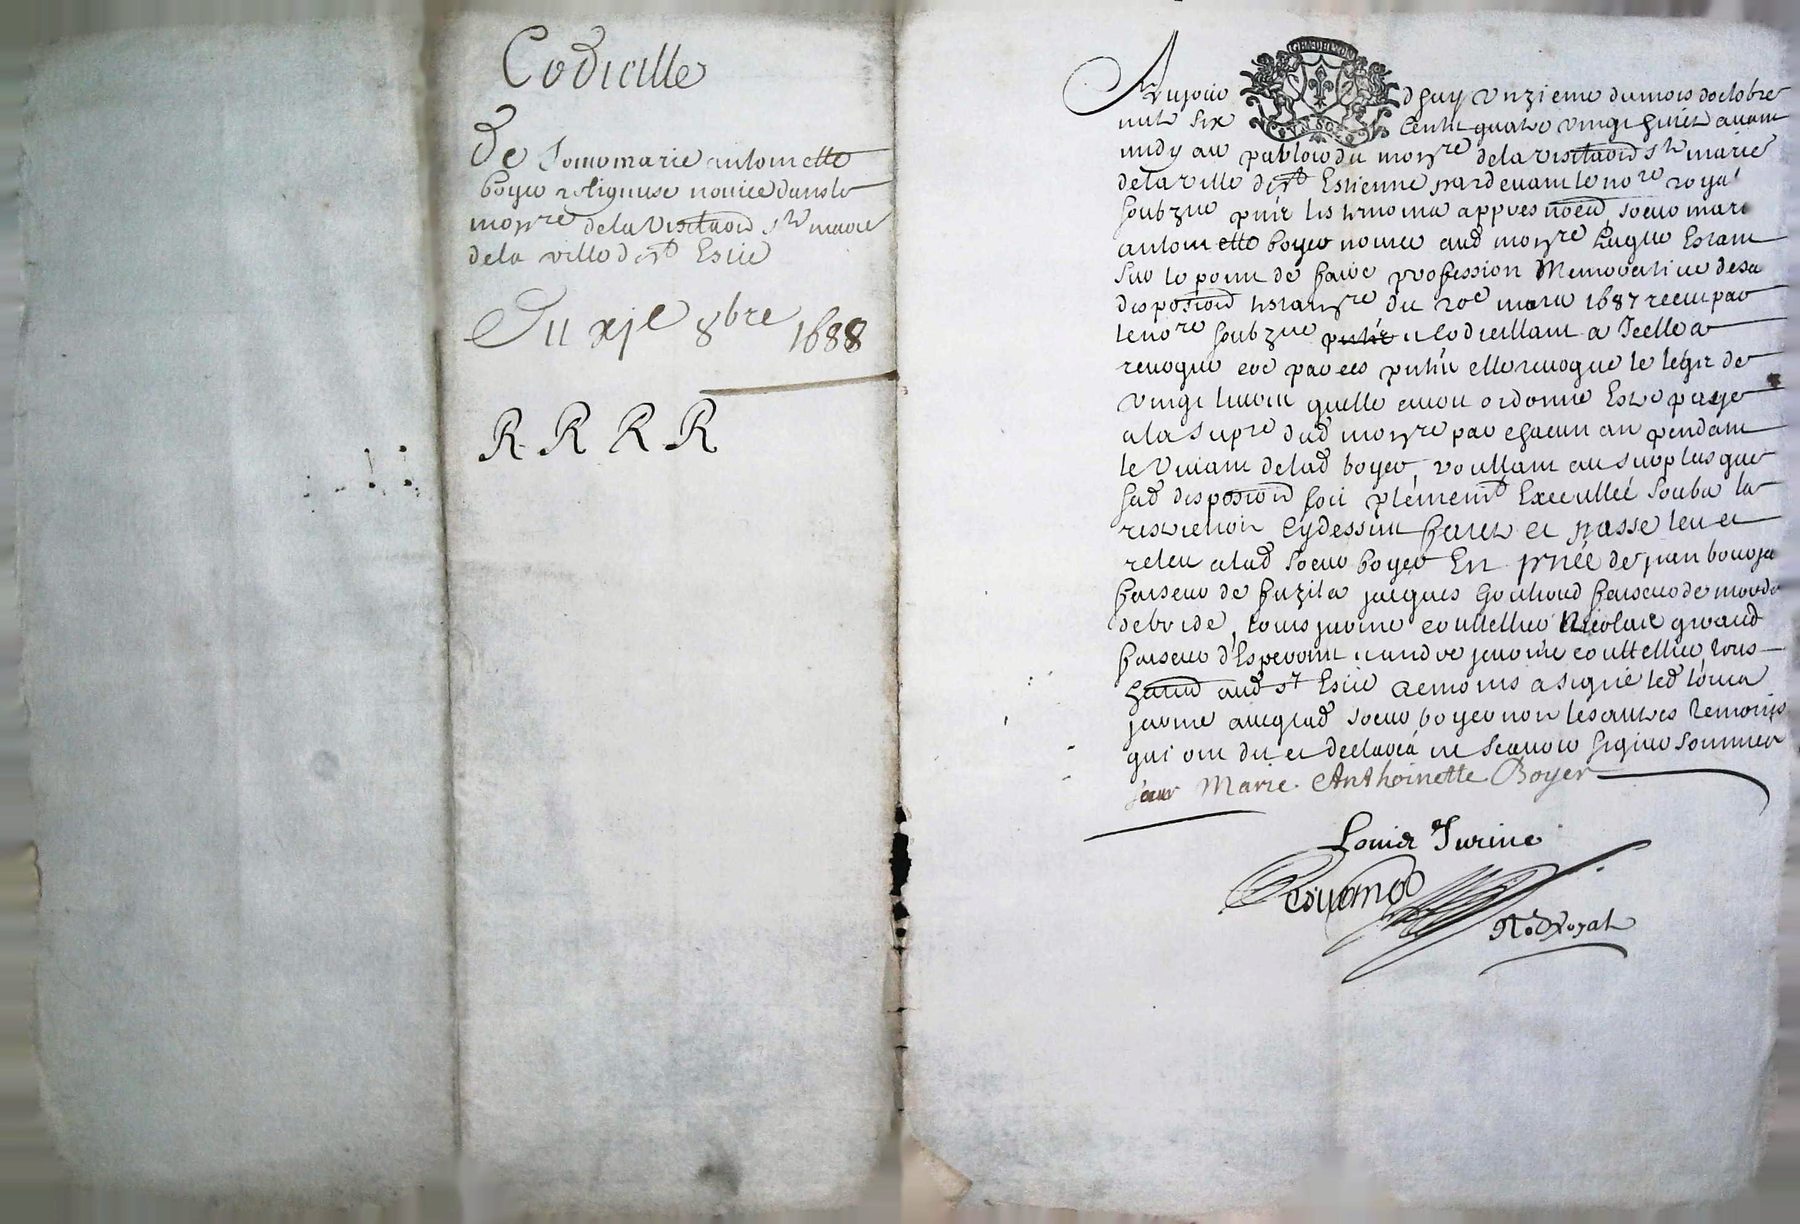 Codicille
De Soeur marie antoinette
boyer religieuse novice dans le
mon.re de la visitaon s.te marie
de la ville de s.t Estie
Du xje 8bre 1688
R R R R
Aujourdhuy unzieme du mois doctobre
mil six cents quatre vingt huict avant
midy au parloir du mon.re de la visitaon s.te marie
de la ville de s.t Estienne pardevant le no.re royal
soubz.né les tesmoins appres nom.és soeur marie
antoinette boyer novice aud mon.re laquelle estant
sur le point de faire profession memorative de sa
disposition du mars 1687 receu par
le no.re soubz.né codicillant a Icelle a
revoqué elle revoque le legat de
vingt livres quelle avoit ordonné Estre payé
a la Supre dud mon.re par chacun an pendant
le vivant de lad boyer, voullant au surplus que
sad disposion soit plenem.t Executtée soubz la
restriction cydessus faict et passé leu et
releu a lad soeur boyer En pnce de jean
faiseur de fuzils jacques faiseur de
de bride, louis jurine couttellier Nicolas giraud
faiseur d'Esperons et andre jurine couttellier tous
aud s.t Estie temoins a signé led louis
jurine avecq lad soeur boyer non les autres temoins
qui ont dit et declaré ne scavoir signer sommés
Soeur Marie Anthoinette Boyer
Louis Jurine
No. Royal
GEN DE LYON
VN SOL